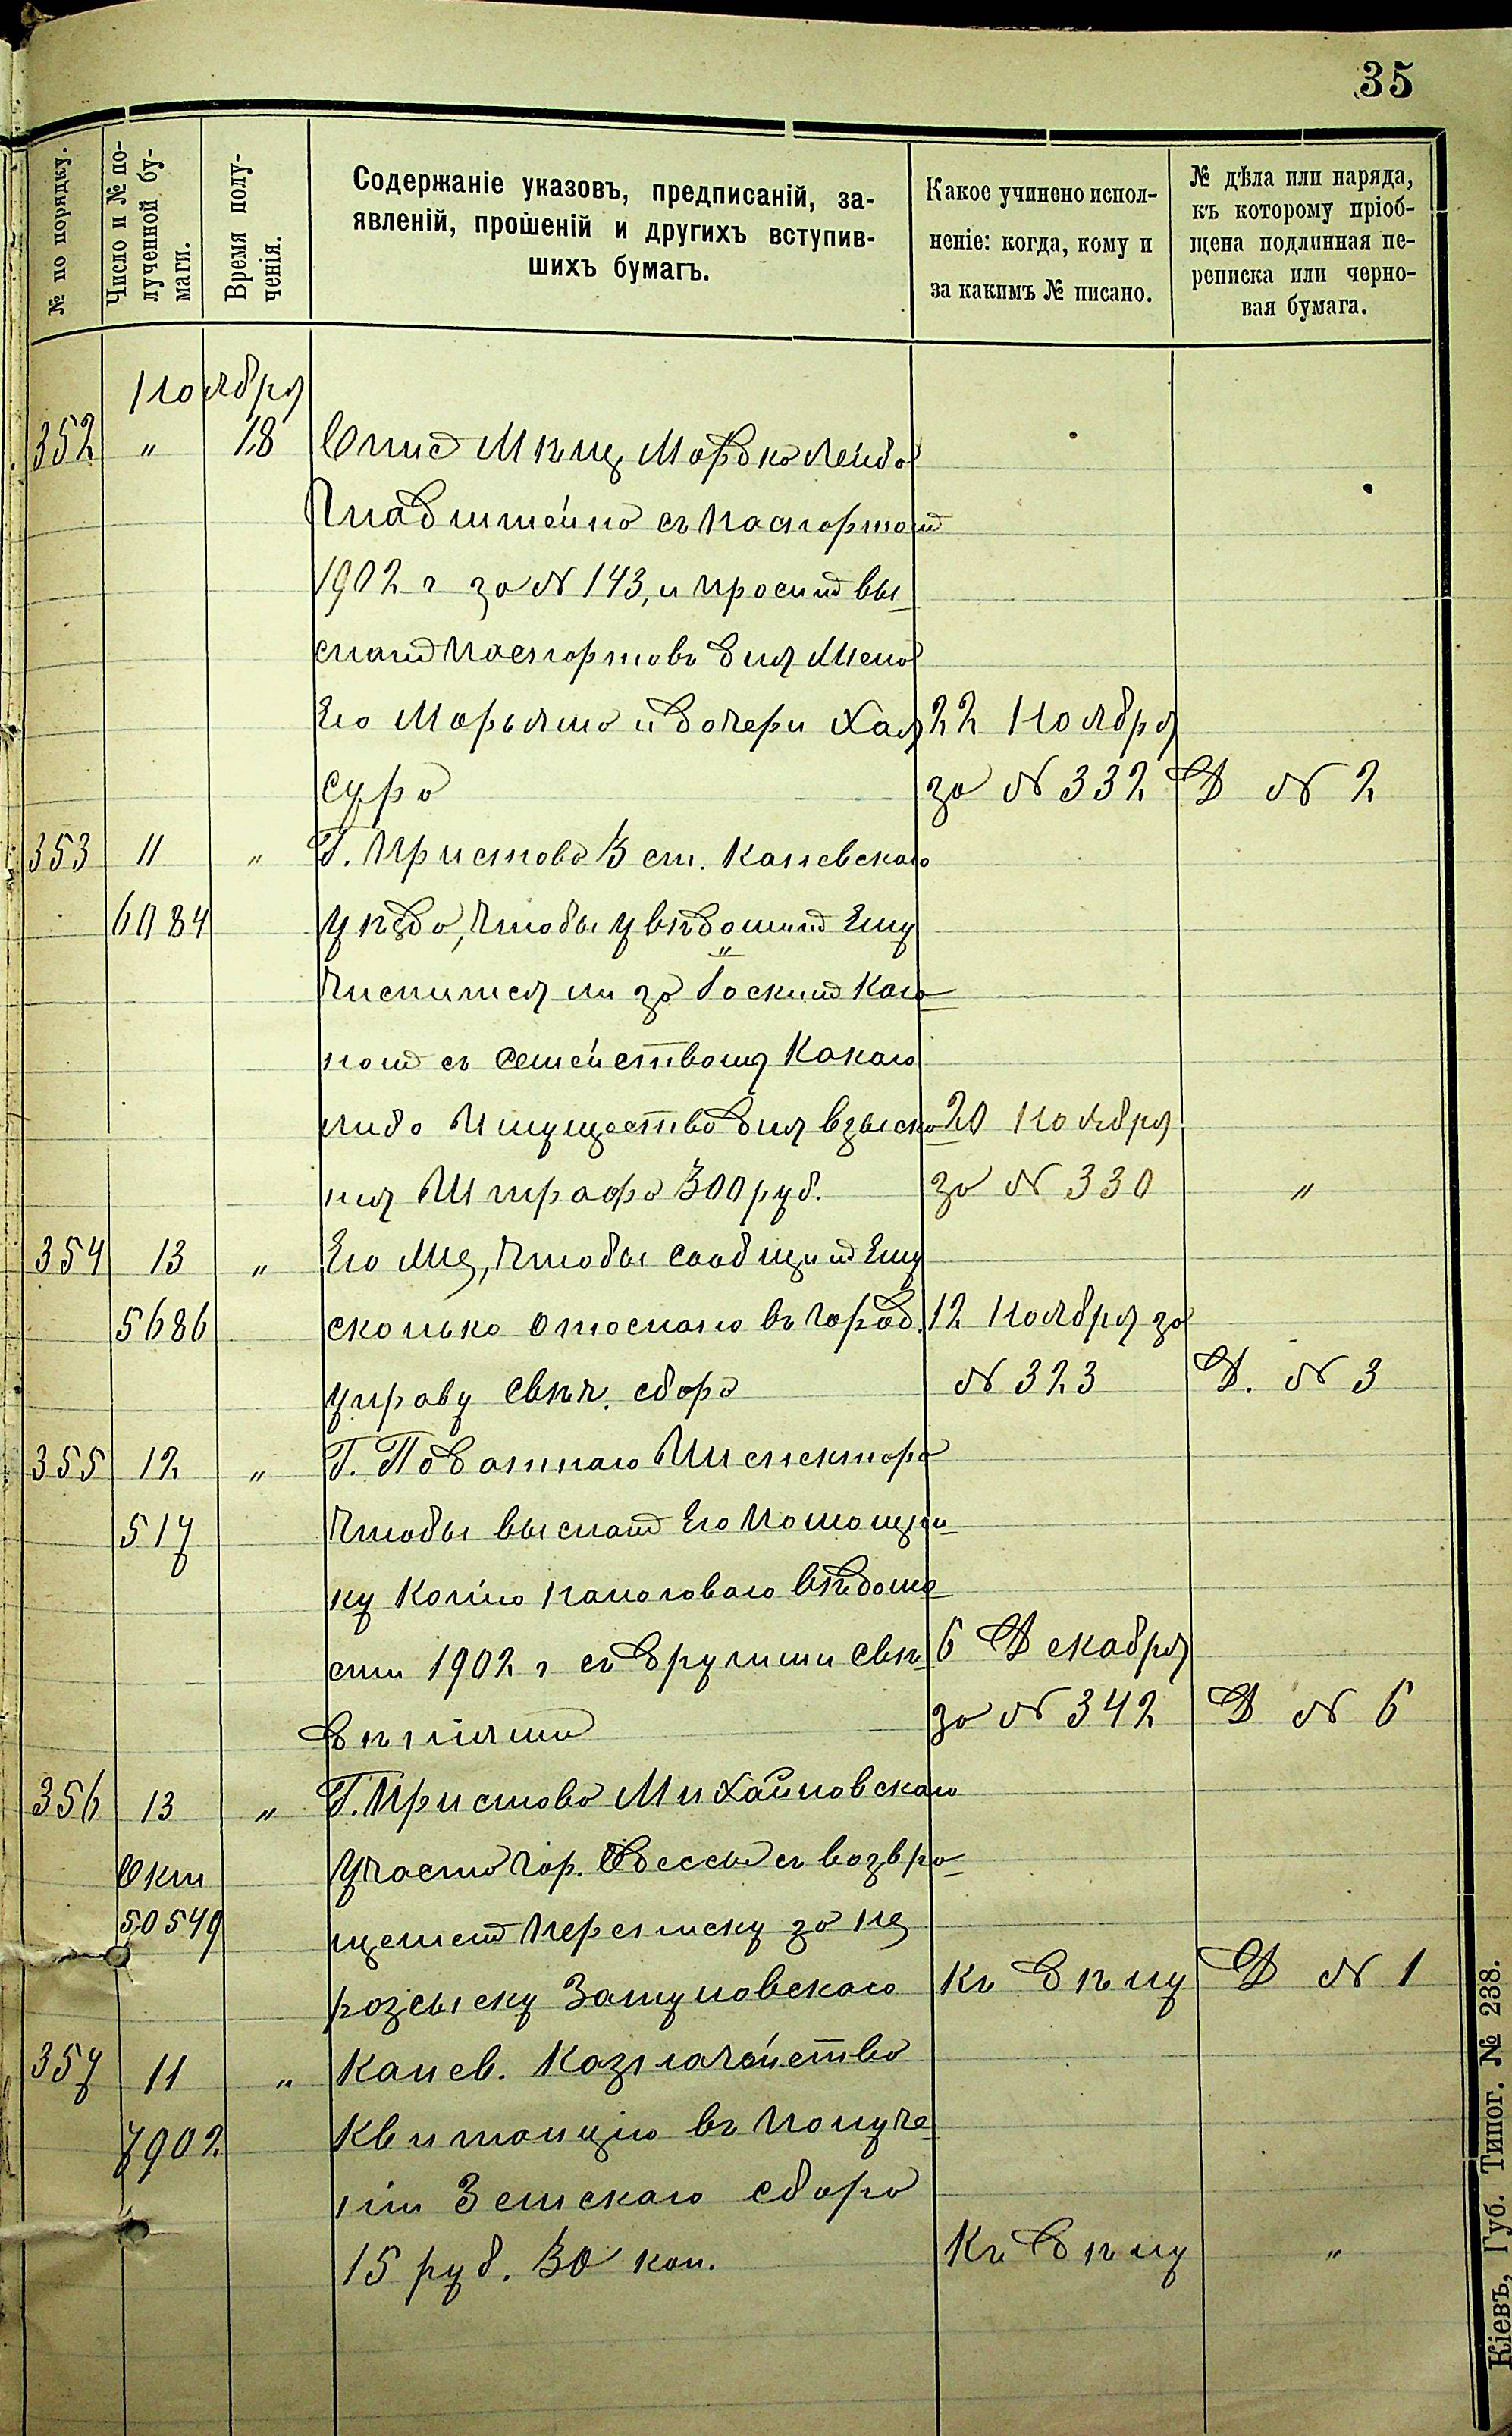 35
№ по порядку.
Число и № по-
лученной бу-
маги.
Время полу-
ченія.
Содержаніе указовъ, предписаній, за-
явленій, прошеній и другихъ вступив-
шихъ бумагъ.
Какое учинено испол-
неніе: когда, кому и
за какимъ № писано.
№ дѣла или наряда,
къ которому пріоб-
щена подлинная пе-
реписка или черно-
вая бумага.
Ноября
352 " 18 Мѣщ Мордко Лейба
съ паспортом
1902 г за № 143, и просит вы-
слат паспортовъ для Жены
Его Марьямы и дочери Хая 22 Ноября
Сура за № 332 Д № 2
353 11 " Г. Пристова 3 ст. Каневскаго
6084 уѣзда, чтобы увѣдомит Ему
числится ли за Госкинд Кага-
ном съ семействомъ какаго
либо Имущества для взыска- 20 Ноября
нія Штрафа 300 руб. за № 330 "
354 13 " Его Же, чтобы сообщит Ему
5686 сколько отослано въ город. 12 Ноября за
управу свѣч. сбора № 323 Д. № 3
355 12 " Г. Податнаго Инспектора
517 чтобы выслат Его помощни-
ку копію налоговаго вѣдомо-
сти 1902 г съ другими свѣ- 6 Декабря
дѣніями за № 342 Д № 6
356 13 " Г. Пристова Михайловскаго
Окт участка гор. Одессы съ возвра-
50549 щеніем переписку за не
розыску Затуловскаго Къ дѣлу Д № 1
357 11 " Канев. Казначейство
7902 Квитанцію въ получе-
ніи Земскаго сбора
15 руб. 30 коп. Къ дѣлу "
Кіевъ, Губ. Типог. № 238.